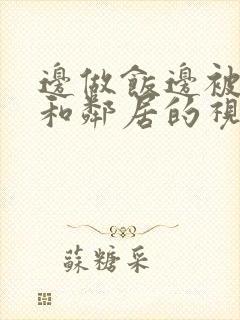 邊做飯邊被
和鄰居的視
蘇糖采